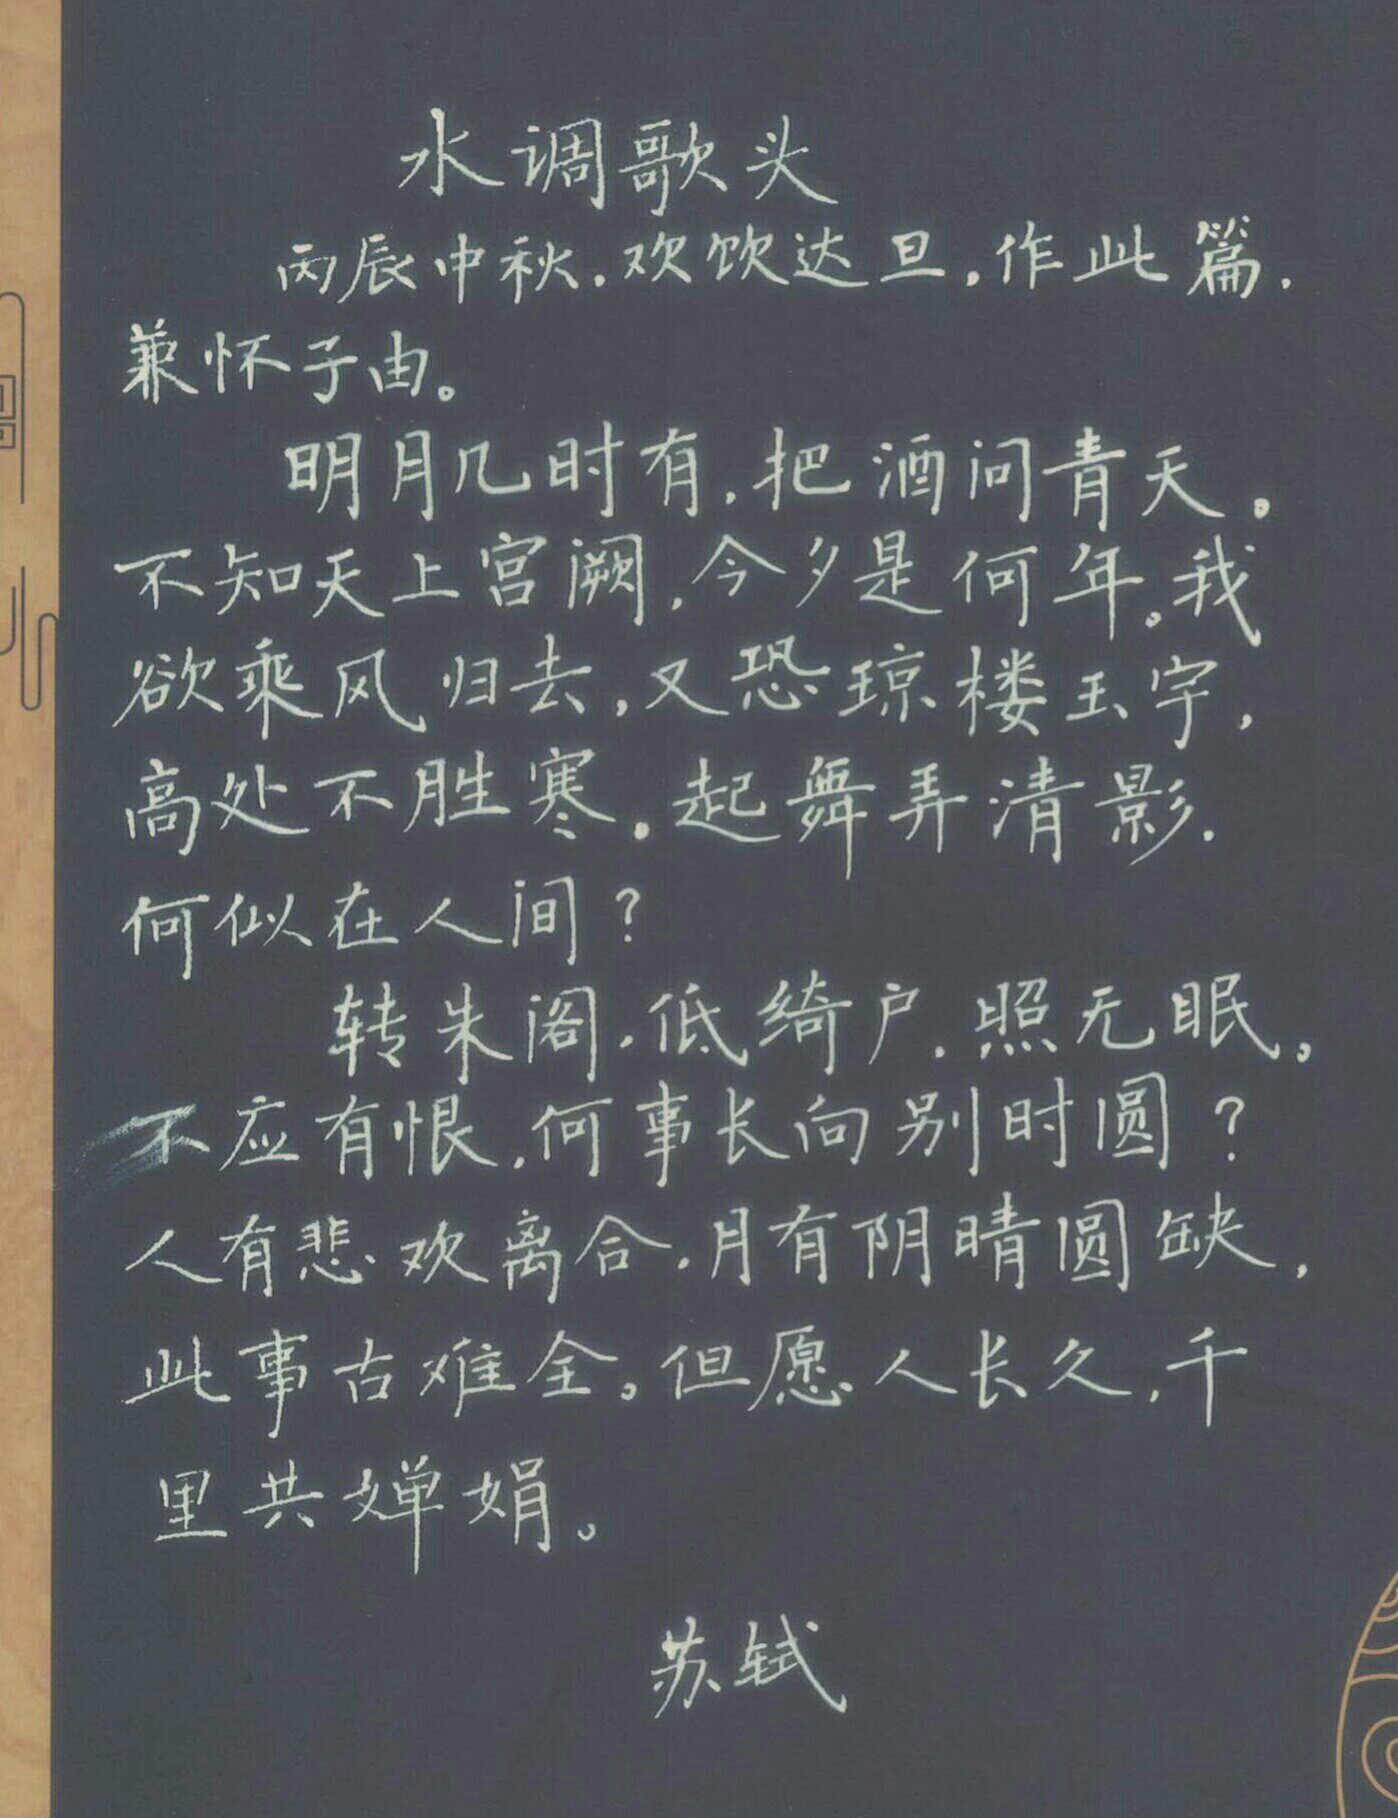 水调歌头
丙辰中秋，欢饮达旦，作此篇，
兼怀子由。
明月几时有，把酒问青天。
不知天上宫阙，今夕是何年。我
欲乘风归去，又恐琼楼玉宇，
高处不胜寒。起舞弄清影，
何似在人间？
转朱阁，低绮户，照无眠。
不应有恨，何事长向别时圆？
人有悲欢离合，月有阴晴圆缺，
此事古难全。但愿人长久，千
里共婵娟。
苏轼